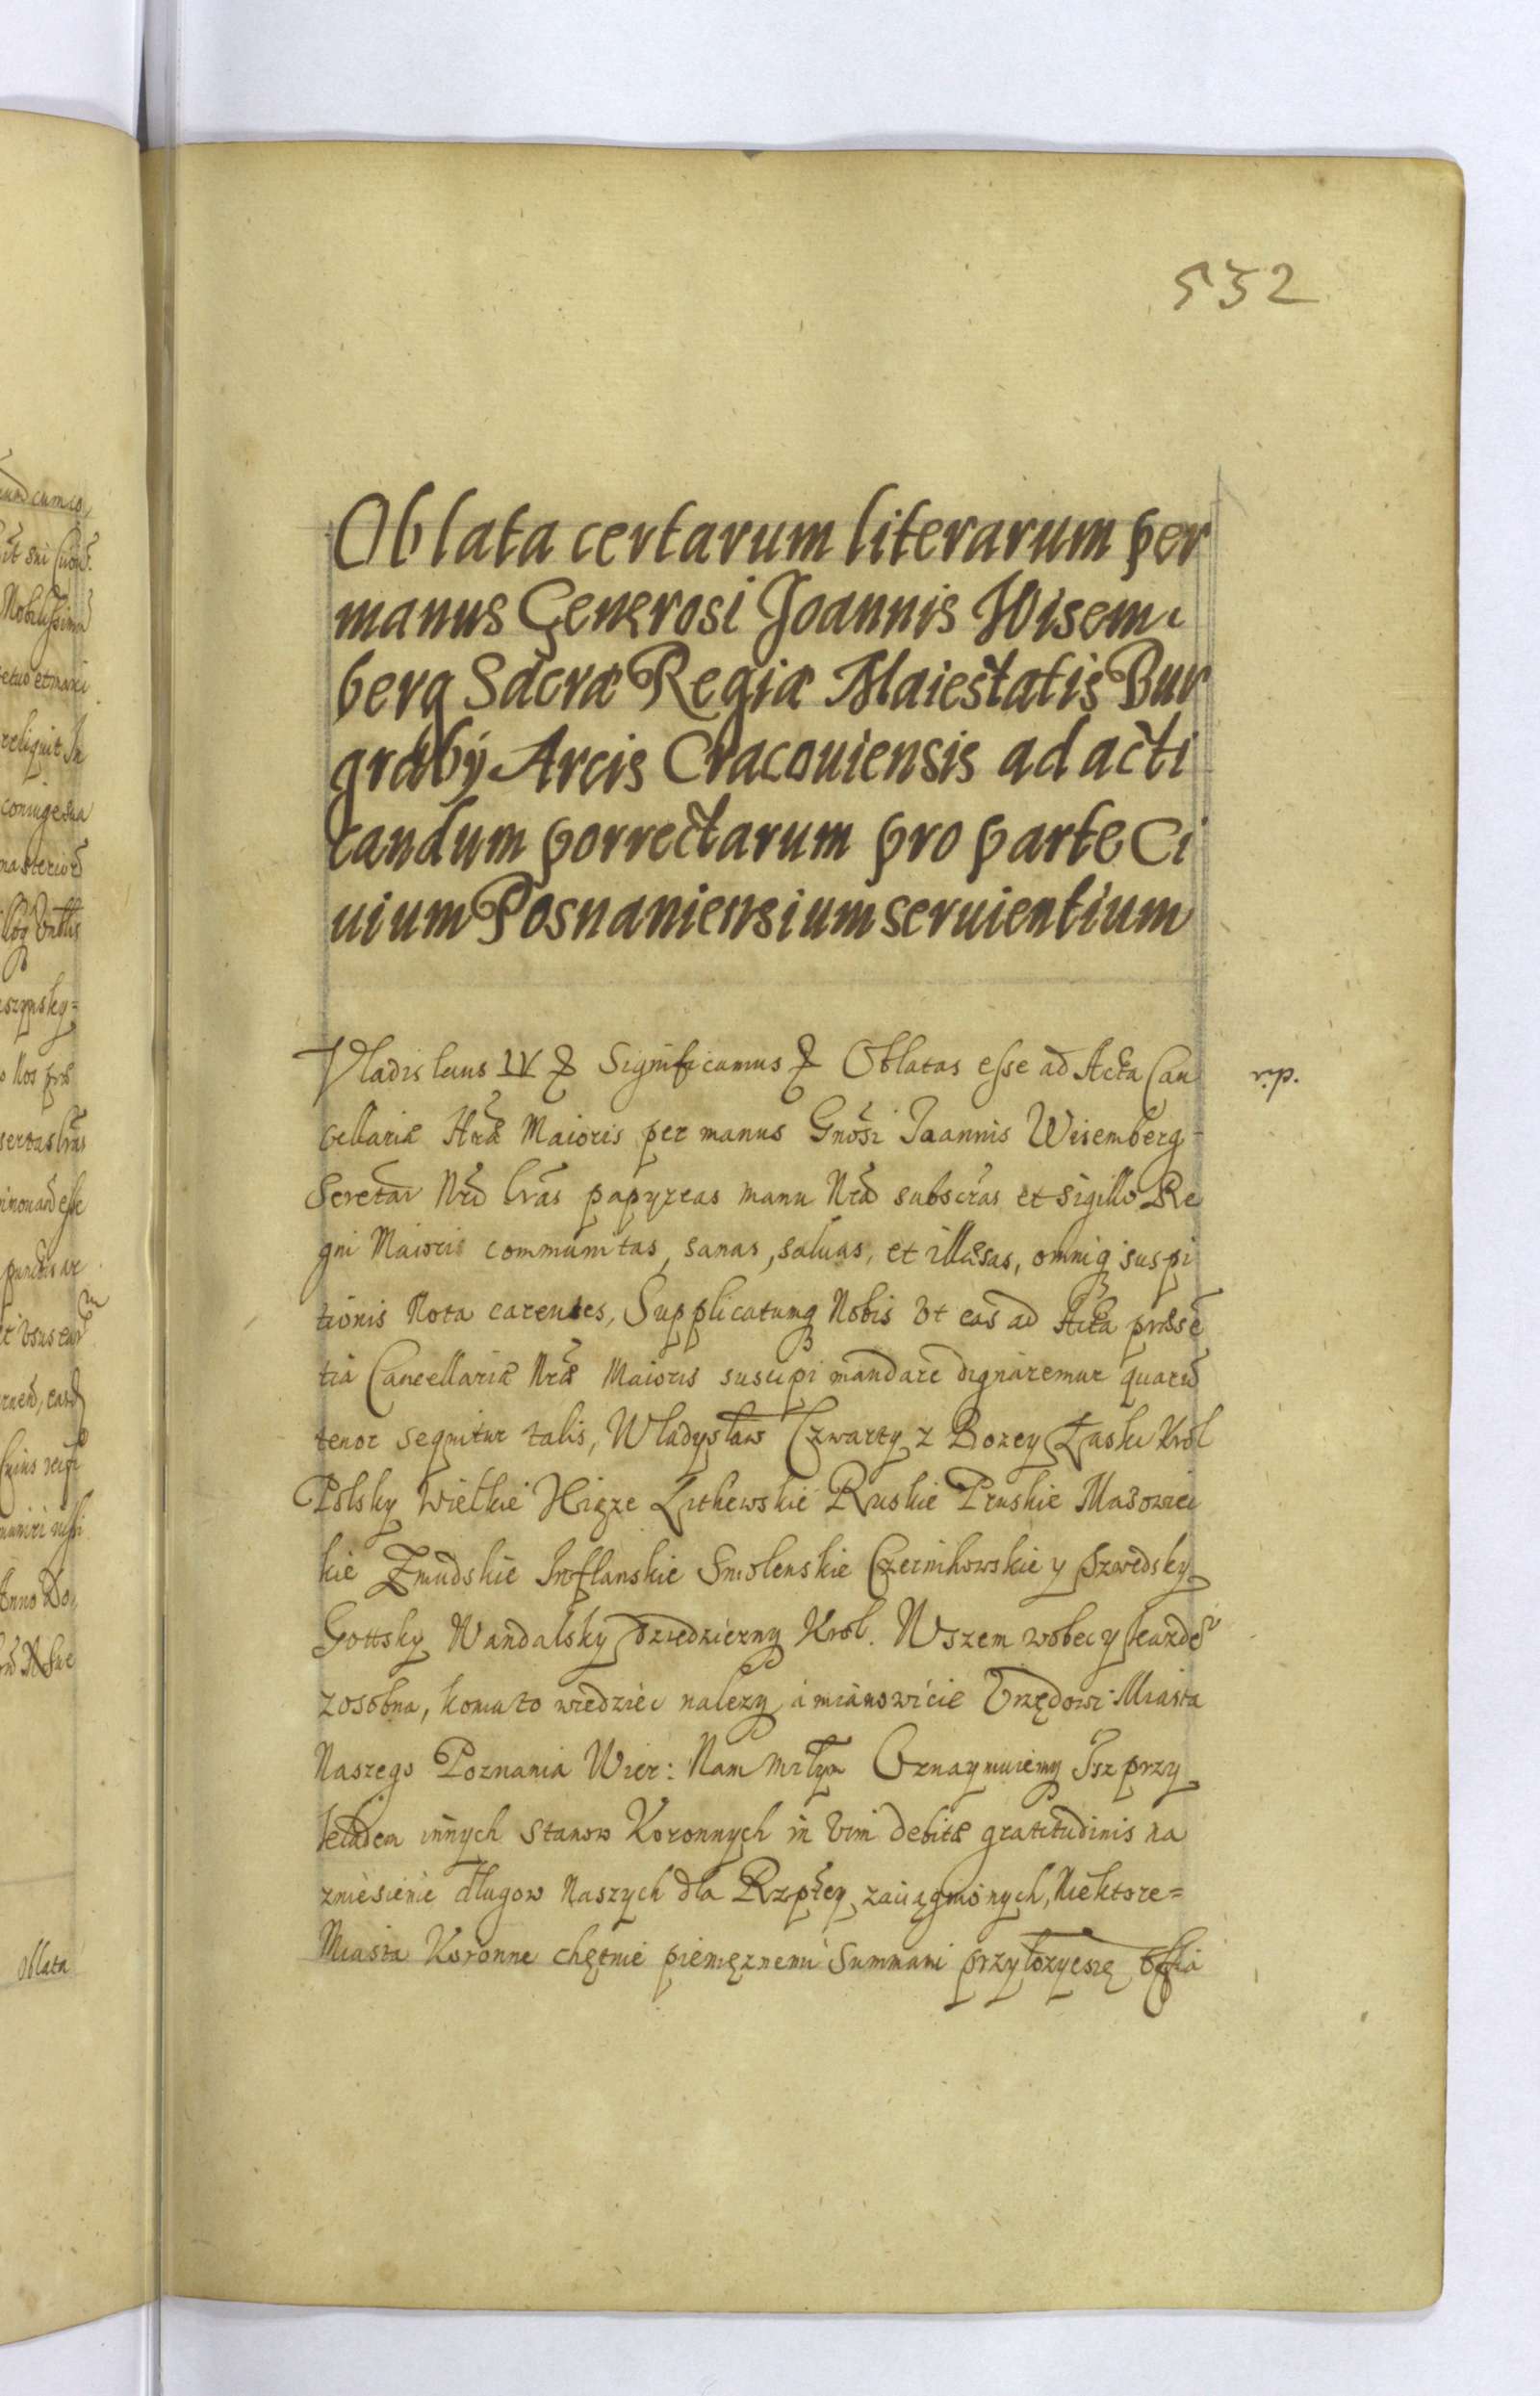 532
Oblata certarum literarum per
manus Generosi Joannis Wisem
berg Sacræ Regiæ Maiestatis Bur
grabÿ Arcis Cracouiensis ad acti
candum porrectarum pro parte Ci
uium Posnaniensium seruientium
Vladislaus IV Significamus Oblatas esse ad Acta Can
cellariæ Nræ Maioris per manus Gnosi Joannis Wisemberg
Secretar Nri lras papyreas manu Nra subscras et sigillo Re
gni Maioris communitas, sanas, saluas, et illæsas, omniq suspi
tionis Nota carentes, Supplicatumq Nobis Vt eas ad Acta præsē
tia Cancellariæ Nræ Maioris suscipi mandare dignaremur quarū
tenor sequitur talis, Wladysław Czwarty z Bozey Łaski Krol
Polsky Wielkie Xiąze Lithewskie Ruskie Pruskie Mazowiec
kie Zmudskie Inflanskie Smolenskie Czernihowskie y Szwedsky
Gottsky Wandalsky dziedziczny Krol. Wszem wobec y kazdeo
zosobna, komu to wiedziec nalezy a mianowicie Vrzędowi Miasta
Naszego Poznania Wier: Nam miłym Oznaymuiemy Isz przy
kładem innych Stanow Koronnych in Vim debitæ gratitudinis na
zniesienie długow Naszych dla Rzpltey zaciągnionych, Niektore=
Miasta Koronne chętnie pienięznemi Summami przyłozyc się
Oblata